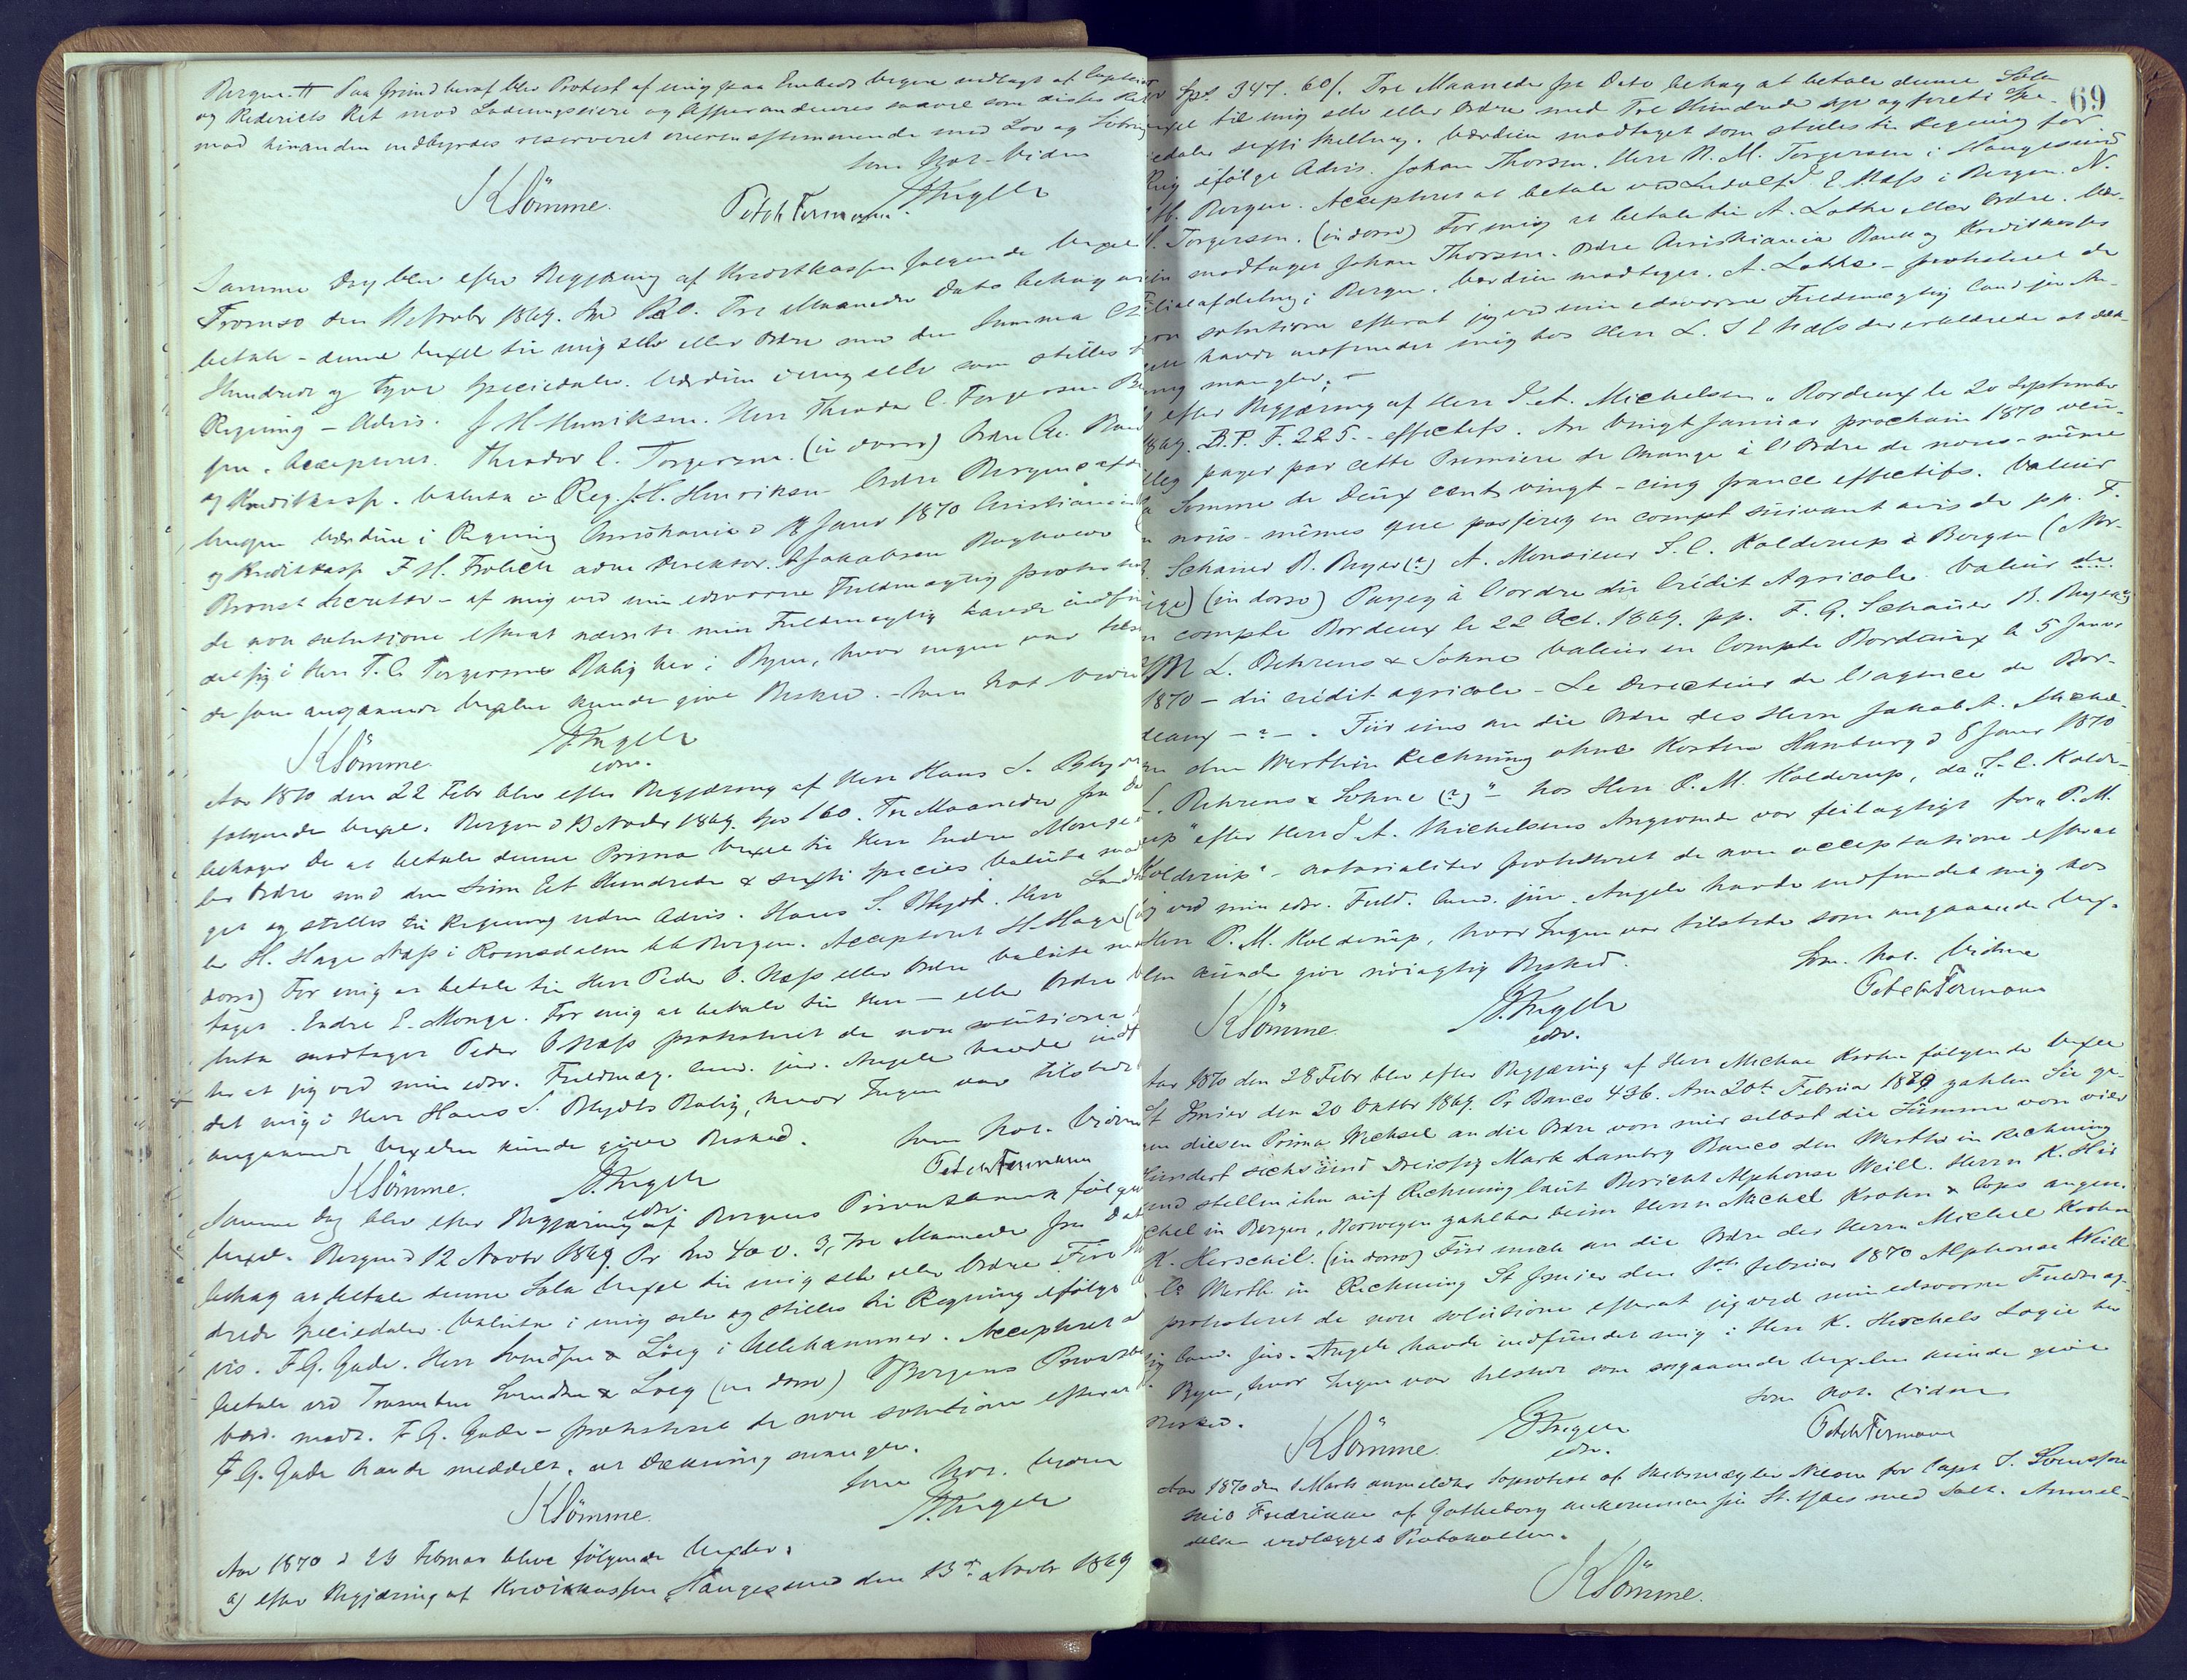 Bergen. # Paa Grund heraf blev Protest af mig paa Embeds Vegne modtaget af Capteins
og Rederiets Ret mod Ladningseiere og Assurandeurer saavel som disses Ret
mod hinanden indbyrdes reserveret overensstemmende med Lov og
som Not. Vidne
KSömme. Petch Fermann. AAngell
Samme Dag blev efter Begjæring af Kreditkassen følgende Vexel
Tromsø den 11 Novbr 1869. Tre Maaneder Dato behag at
betale denne Vexel til mig selv eller Ordre med den Summa Et
Hundrede og tyve Speciedaler. Værdien i mig selv som stilles
Regning – Advis. J H Henriksen. Herr Theodor C. Torgersen
Accepteret. Theodor C. Torgersen. (in dorso) Ordre Chr. Bank
og Kreditkasse. Valuta i Reg. J.H. Henriksen Ordre Bergens
Værdien i Regning Christiania d 18 Janr 1870 Christiania
og Kreditkasse F H. Frölich adm Direktør. Jakobsen
Secretær – af mig ved min edsvorne Fuldmægtig protesteret
de non solutione efterat nævnte min Fuldmægtig havde indfun
det sig i Herr T. C. Torgersens Bolig her i Byen, hvor ingen var tilstede
de som angaaende Vexlen kunde give Besked. – Som Not Vidne
KSömme. AAngell
edsv.
Aar 1870 den 22 Febr blev efter Begjæring af Herr Hans S. Blydt
følgende Vexel. Bergen d 13 Novbr 1869. Spd 160. Tre Maaneder fra Dato
behager De at betale denne Prima Vexel til Herr Endre Monge
ler Ordre med den Sum Et Hundrede & sexti Species Valuta mod
get og stilles til Regning uden Advis. Hans S. Blydt. Herr
H. Hage Næss i Romsdalen bet. Bergen. Accepteret H. Hage (in
dorso) For mig at betale til Herr Peder O. Næss eller Ordre Valuta mod
taget. Endre E. Monge. For mig at betale til Herr – eller Ordre
luta modtaget Peder O Næss protesteret de non solutione
ter at jeg ved min edsv. Fuldmæg. Cand. jur. Angell havde indfun
det mig i Herr Hans S. Blydts Bolig, hvor Ingen var tilstede
angaaende Vexelen kunde give Besked. Som Not. Vidne
KSömme. AAngell Petch Fermann
edsv.
Samme Dag blev efter Begjæring af Bergens Privatbank følgende
Vexel. Bergen d 12 Novbr 1869. Pr Spd 400. 3, Tre Maaneder fra Dato
behag at betale denne Sola Vexel til mig selv eller Ordre Fire
drede Speciedaler. Valuta i mig selv og stilles til Regning ifølge
vis. F.G. Gade. Herr Svendsen & Löeg i Lillehammer. Accepteret
betale ved Svendsen & Loeg (in dorso) Bergens Privatbank
Værd. modt. F.G. Gade – protesteret de non solutione efterat
F.G. Gade havde meddelt, at Dækning mangler.
KSömme. Som Not. Vidne
AAngell
Aar 1870 d 23 Februar bleve følgende Vexler,
a) efter Begjæring af Kreditkassen „Haugesund den 13de Novbr 1869
69
Spd. 347. 60 ß. Tre Maaneder fra Dato behag at betale denne Sola
til mig selv eller Ordre med Tre Hundrede syv og førti Spe-
ciedaler sexti Skilling. Værdien modtaget som stilles til Regning for
mig ifølge Advis. Johan Thorsen. Herr N. M. Torgersen i Haugesund
Bergen. Accepteret at betale ved Ludolf J. E Næss i Bergen. N.
M. Torgersen. (in dorso) For mig at betale til A. Lothe eller Ordre. Vær-
dien modtaget Johan Thorsen. Ordre Christiania Bank og Kreditkasses
Filialafdeling i Bergen. Værdien modtaget. A. Lothe – protesteret de
non solutione efterat jeg ved min edsvorne Fuldmægtig Cand. jur An-
gell havde indfundet mig hos Herr L. J E Næss der erklærede at Dæk-
ning mangler, –
efter Begjæring af Herr J. A. Michelsen „Bordeaux le 20 Septembre
1869. B.P. F. 225. – effectifs. Au Vingt Janvier prochain 1870 veuil-
lez payer par cette Premiere de Change à l'Ordre de nous-mêmes
la Somme de Deux cent vingt-cinq francs effectifs. Valeur
en nous-mêmes que passerez en compte suivant avis de pp. F.
G. Schauer B. Beyer (?) A. Monsieur J. C. Kolderup à Bergen (Nor-
vège) (in dorso) Payez à l'ordre du Crédit Agricole. Valeur
en compte Bordeaux le 22 Oct. 1869. pp. F. G. Schauer B. Beyer
M L. Behrens & Söhne Valeur en Compte Bordeaux le 5 Janvr
1870 – du crédit agricole – Le Directeur de l'agence de Bor-
deaux – ? – . Für uns an die Ordre des Herrn Jakob A. Michel-
sen den Werth in Rechnung ohne Kosten Hamburg d 8 Janr 1870
L. Behrens & Söhne (?)" – hos Herr P. M. Kolderup, da „J. C. Kolde-
rup" efter Herr J. A. Michelsens Angivende var feilagtigt for „P. M.
Kolderup" – notarialiter protesteret de non acceptatione efterat
jeg ved min edsv. Fuld. Cand. jur. Angell havde indfundet mig hos
Herr P. M. Kolderup, hvor Ingen var tilstede som angaaende Vex-
len kunde give nöiagtig Besked. Som. Not. Vidne
KSömme. AAngell Petch Fermann
edsv.
Aar 1870 den 28 Febr blev efter Begjæring af Herr Michael Krohn følgende Vexel
St Imier den 20 Octbr 1869. Pr Banco 436. Am 20ten Februar 1870 zahlen Sie ge-
gen diesen Prima Wechsel an die Ordre von mir selbst die Summe von vier
Hundert sechs und Dreissig Mark Hamburg Banco den Werth in Rechnung
und stellen ihn auf Rechnung laut Bericht Alphonse Weill. Herrn K. Her
schel in Bergen, Norwegen zahlbar beim Herrn Michel Krohn & Cps angen.
K. Herschel. (in dorso) Für mich an die Ordre der Herrn Michael Krohn
& Co Werth in Rechnung St Imier den februar 1870 Alphonse Weill
protesteret de non solutione efterat jeg ved min edsvorne Fuldmæg-
tig Cand. jur. Angell havde indfundet mig i Herr K. Herschels Logie her
i Byen, hvor Ingen var tilstede som angaaende Vexelen kunde give
Besked. Som Not. Vidne
KSömme AAngell Petch Fermann
edsv.
Aar 1870 den 1 Marts anmeldtes Søprotest af Skibsmægler Nilsen for Capt J. Svensson
Skib Fredrikke af Gøtheborg ankommen fra St. Ybes med Salt. Anmel-
delsen vedlægges Protokollen.
KSömme.